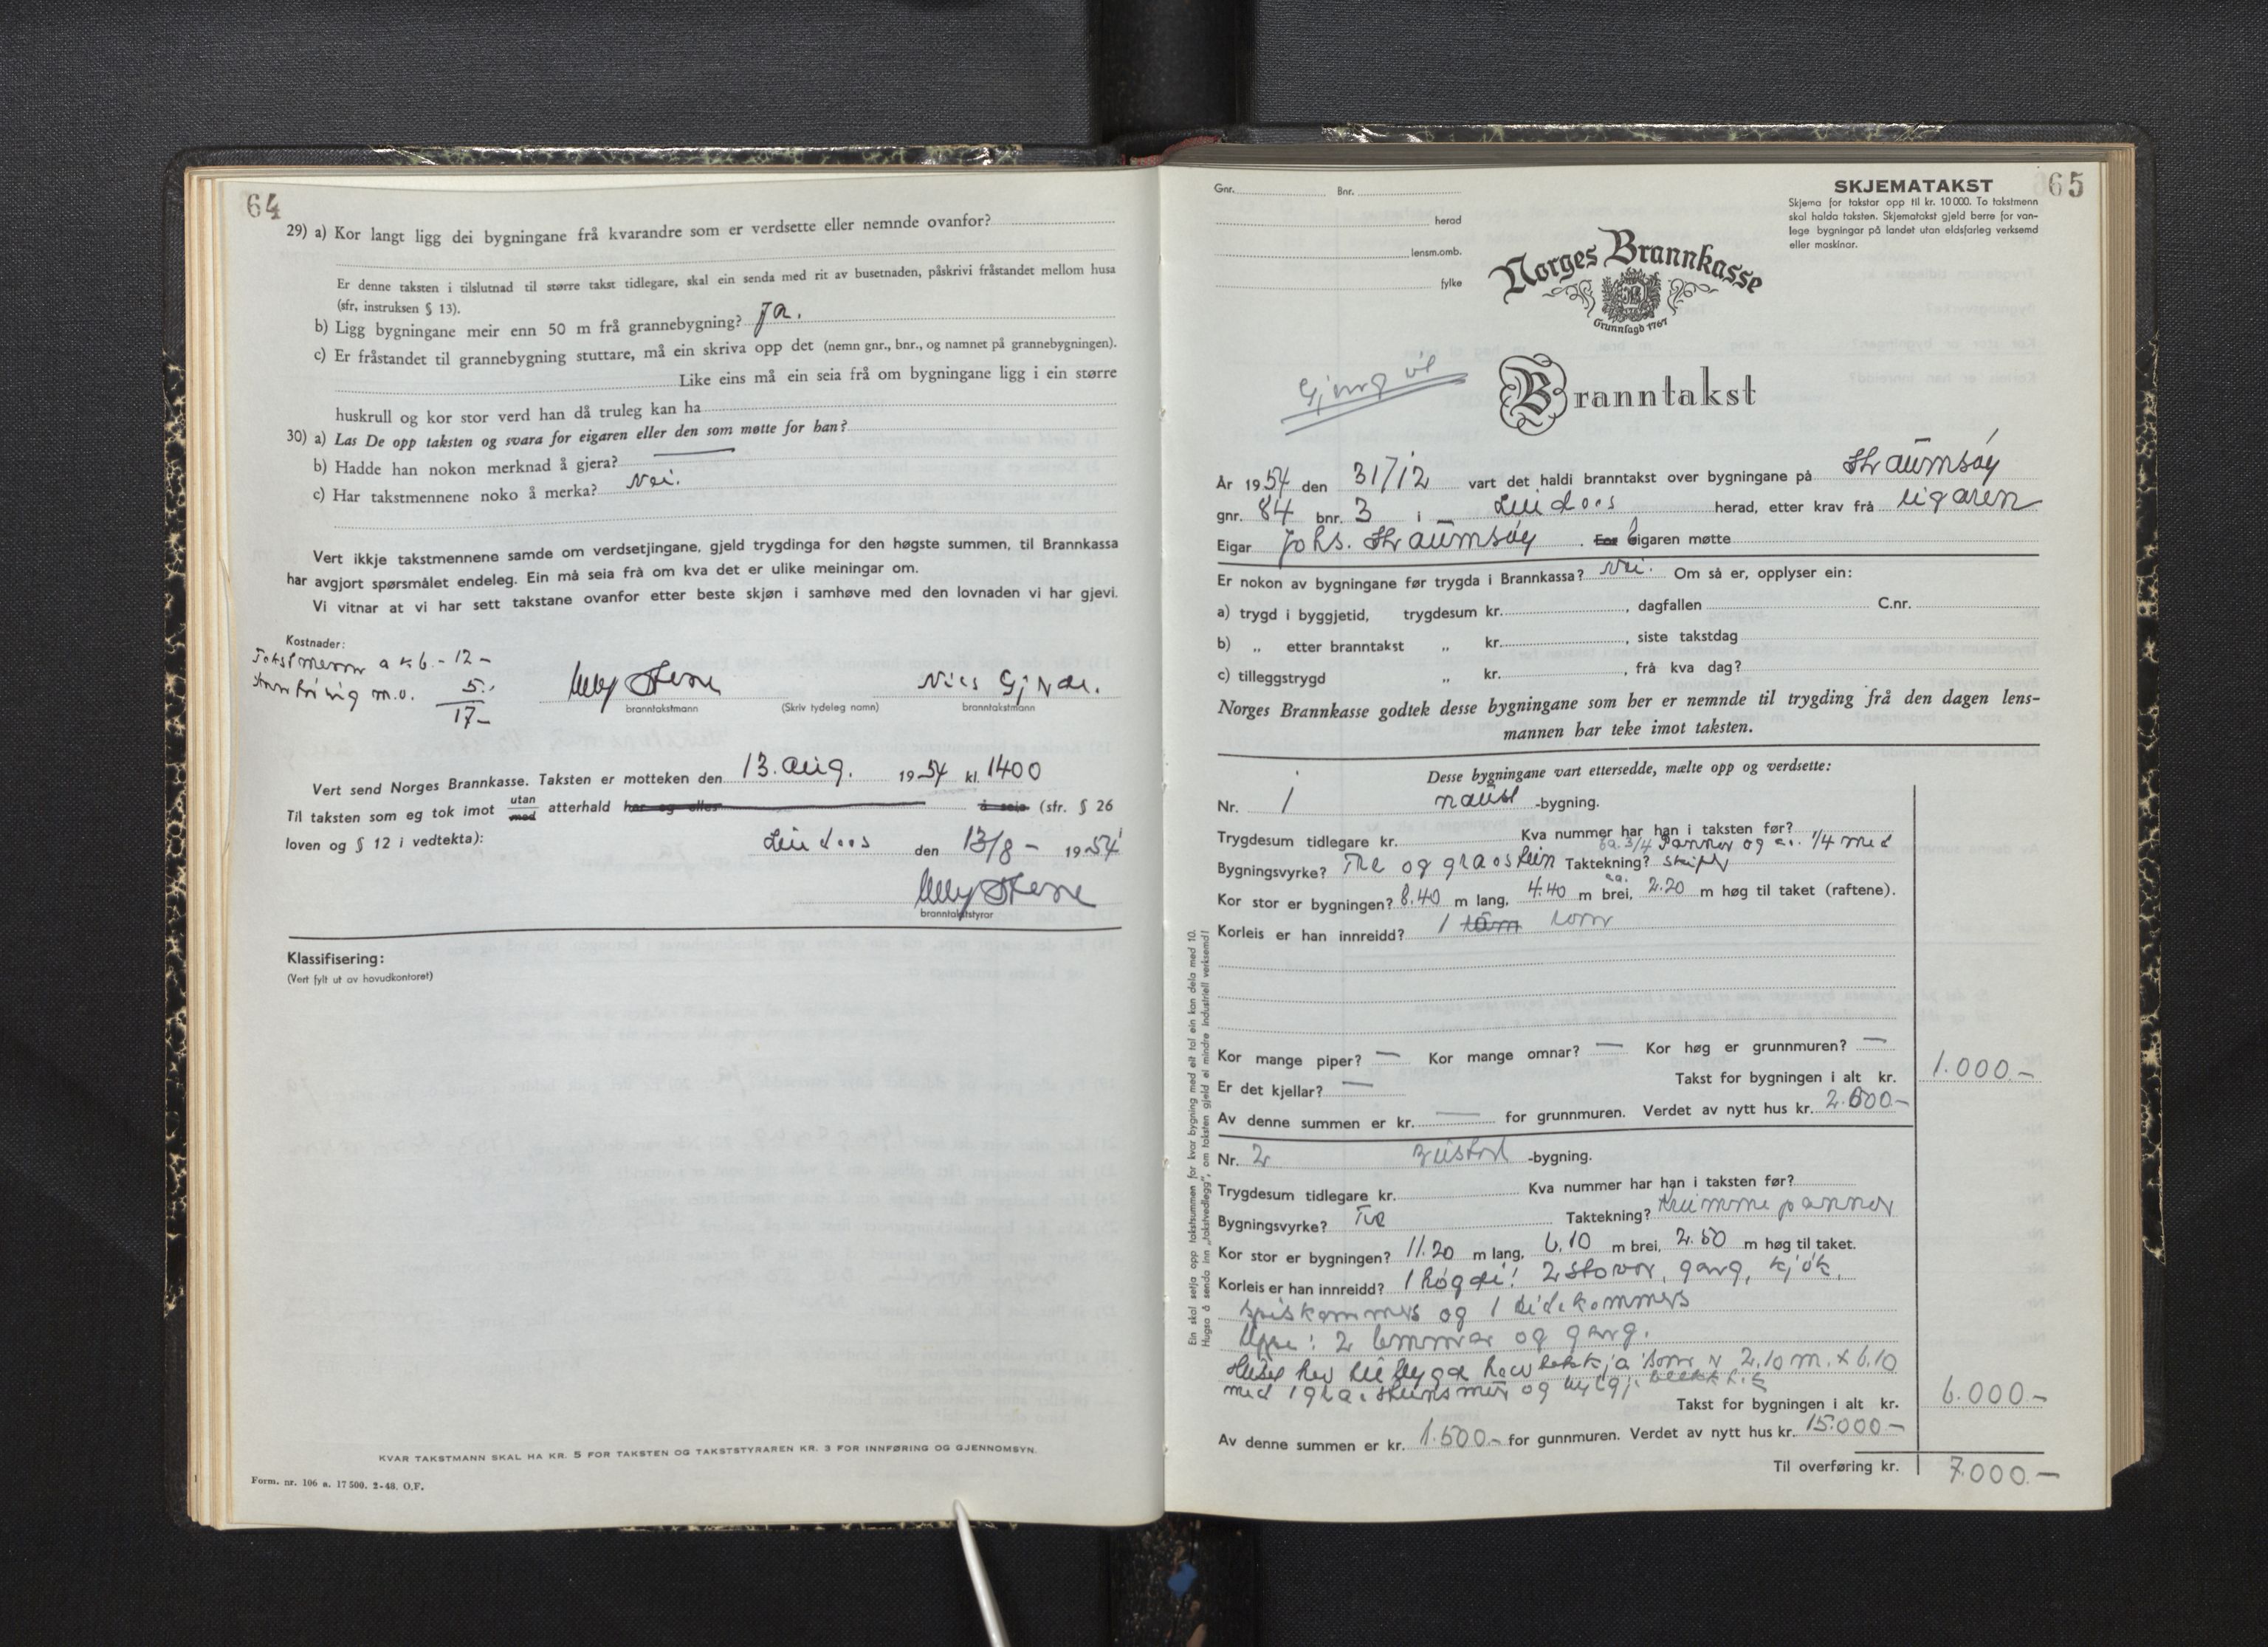 64
29) a) Kor langt ligg dei bygningane frå kvarandre som er verdsette eller nemnde ovanfor?
Er denne taksten i tilslutnad til større takst tidlegare, skal ein senda med rit av busetnaden, påskrivi fråstandet mellom husa
(sfr, instruksen § 13).
b) Ligg bygningane meir enn 50 m frå grannebygning? Ja.
c) Er fråstandet til grannebygning stuttare, må ein skriva opp det (nemn gnr., bnr., og namnet på grannebygningen).
Like eins må ein seia frå om bygningane ligg i ein større
huskrull og kor stor verd han då truleg kan ha
30) a) Las De opp taksten og svara for eigaren eller den som møtte for han?
b) Hadde han nokon merknad å gjera? —
c) Har takstmennene noko å merka? Nei.
Vert ikkje takstmennene samde om verdsetjingane, gjeld trygdinga for den høgste summen, til Brannkassa
har avgjort spørsmålet endeleg. Ein må seia frå om kva det er ulike meiningar om.
Vi vitnar at vi har sett takstane ovanfor etter beste skjøn i samhøve med den lovnaden vi har gjevi.
Kostnader:
Takstmenn a k 6.- 12-
Innføring m.v. 5.-
17-
Nils Gjnde.
branntakstmann (Skriv tydeleg namn) branntakstmann
Vert send Norges Brannkasse. Taksten er motteken den 13. aug. 1954 kl. 1400
Til taksten som eg tok imot utan med atterhald har eg eller å seia (sfr. § 26
loven og § 12 i vedtekta):
Lindås den 13/8 - 1954
branntakststyrar
Klassifisering:
(Vert fylt ut av hovudkontoret)
KVAR TAKSTMANN SKAL HA KR. 5 FOR TAKSTEN OG TAKSTSTYRAREN KR. 3 FOR INNFØRING OG GJENNOMSYN.
Form. nr. 106 a. 17 500. 2-48. O.F.
65
SKJEMATAKST
Skjema for takstar opp til kr. 10 000. To takstmenn
skal halda taksten. Skjematakst gjeld berre for van-
lege bygningar på landet utan eldsfarleg verksemd
eller maskinar.
Gnr. Bnr.
herad
lensm.omb.
fylke
Norges Brannkasse
Grunnlagd 1767
Branntakst
År 1954 den 31/12 vart det haldi branntakst over bygningane på Straumsøy
gnr. 84 bnr. 3 i Lindås herad, etter krav frå eigaren
Eigar Johs. Straumsøy. For Eigaren møtte
Er nokon av bygningane før trygda i Brannkassa? Nei. Om så er, opplyser ein:
a) trygd i byggjetid, trygdesum kr. , dagfallen C.nr.
b) „ etter branntakst „ kr. , siste takstdag
c) tilleggstrygd „ kr. , frå kva dag?
Norges Brannkasse godtek desse bygningane som her er nemnde til trygding frå den dagen lens-
mannen har teke imot taksten.
Desse bygningane vart ettersedde, mælte opp og verdsette:
Nr. 1 naust -bygning.
Trygdesum tidlegare kr. Kva nummer har han i taksten før?
ca. 3/4 Panner og ca. 1/4 med
Bygningsvyrke? Tre og gråstein Taktekning? skifer
Kor stor er bygningen? 8.40 m lang, 4.40 m brei, ca. 2.20 m høg til taket (raftene).
Korleis er han innreidd? 1 rom
Kor mange piper? — Kor mange omnar? — Kor høg er grunnmuren? —
Er det kjellar? — Takst for bygningen i alt kr. 1.000.-
Av denne summen er kr. — for grunnmuren. Verdet av nytt hus kr. 2.600-
Nr. 2 -bygning.
Trygdesum tidlegare kr. Kva nummer har han i taksten før?
Bygningsvyrke? Tre Taktekning? Krumme panner
Kor stor er bygningen? 11.20 m lang, 6.10 m brei, 2.50 m høg til taket.
Korleis er han innreidd? 1 høgde: 2 stover, gang, kjøk,
spiskammers og 1 sidekammers
Uppe: 2 lemmar og gang.
Huset hev 2.10 m. x 6.10
med 1 og
Takst for bygningen i alt kr. 6.000-
Av denne summen er kr. 1.500- for gunnmuren. Verdet av nytt hus kr. 15.000-
Til overføring kr. 7.000.-
Ein skal setja opp takstsummen for kvar bygning med eit tal ein kan dela med 10.
Hugsa å senda inn „takstvedlegg", om taksten gjeld ei mindre industriell verksemd!